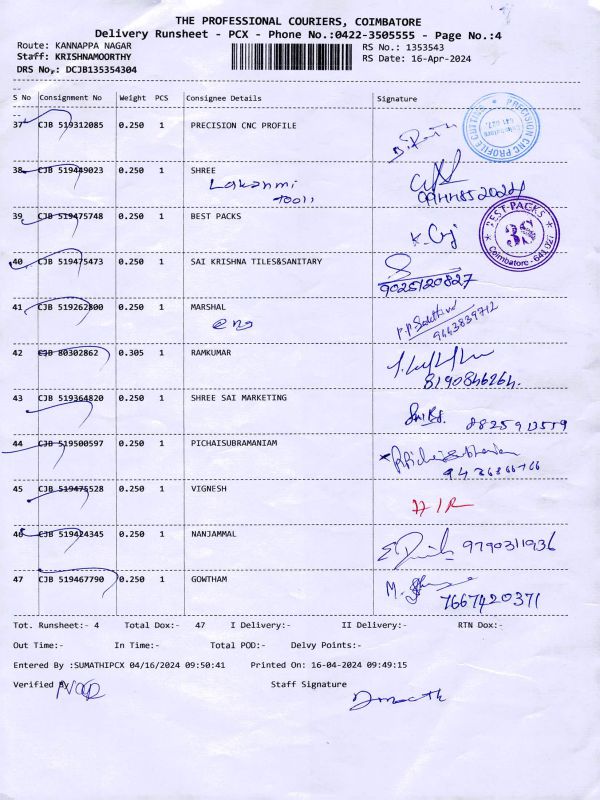 THE PROFESSIONAL COURIERS, COIMBATORE
Delivery Runsheet - PCX - Phone No.:0422-3505555 - Page No.:4
Route: KANNAPPA NAGAR RS No.: 1353543
Staff: KRISHNAMOORTHY RS Date: 16-Apr-2024
DRS No.: DCJB135354304
S No Consignment No Weight PCS Consignee Details Signature
37 CJB 519312085 0.250 1 PRECISION CNC PROFILE
PRECISION CNC PROFILE CUTTING
Coimbatore
641 027.
38 CJB 519449023 0.250 1 SHREE
Lakshmi
Tools
9944852024
39 CJB 519475748 0.250 1 BEST PACKS
BEST PACKS
Coimbatore - 641 027
40 CJB 519475473 0.250 1 SAI KRISHNA TILES&SANITARY
9025120827
41 CJB 519262800 0.250 1 MARSHAL
Eng
9443839712
42 CJB 80302862 0.305 1 RAMKUMAR
8190846264.
43 CJB 519364820 0.250 1 SHREE SAI MARKETING
44 CJB 519500597 0.250 1 PICHAISUBRAMANIAM
45 CJB 519475528 0.250 1 VIGNESH
46 CJB 519424345 0.250 1 NANJAMMAL
9790311936
47 CJB 519467790 0.250 1 GOWTHAM
7667420371
Tot. Runsheet:- 4 Total Dox:- 47 I Delivery:- II Delivery:- RTN Dox:-
Out Time:- In Time:- Total POD:- Delvy Points:-
Entered By :SUMATHIPCX 04/16/2024 09:50:41 Printed On: 16-04-2024 09:49:15
Verified By Staff Signature